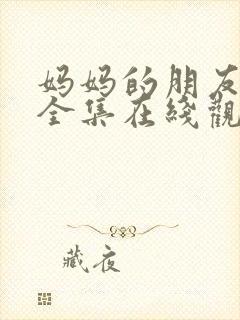 妈妈的朋友
全集在綫觀
藏夜